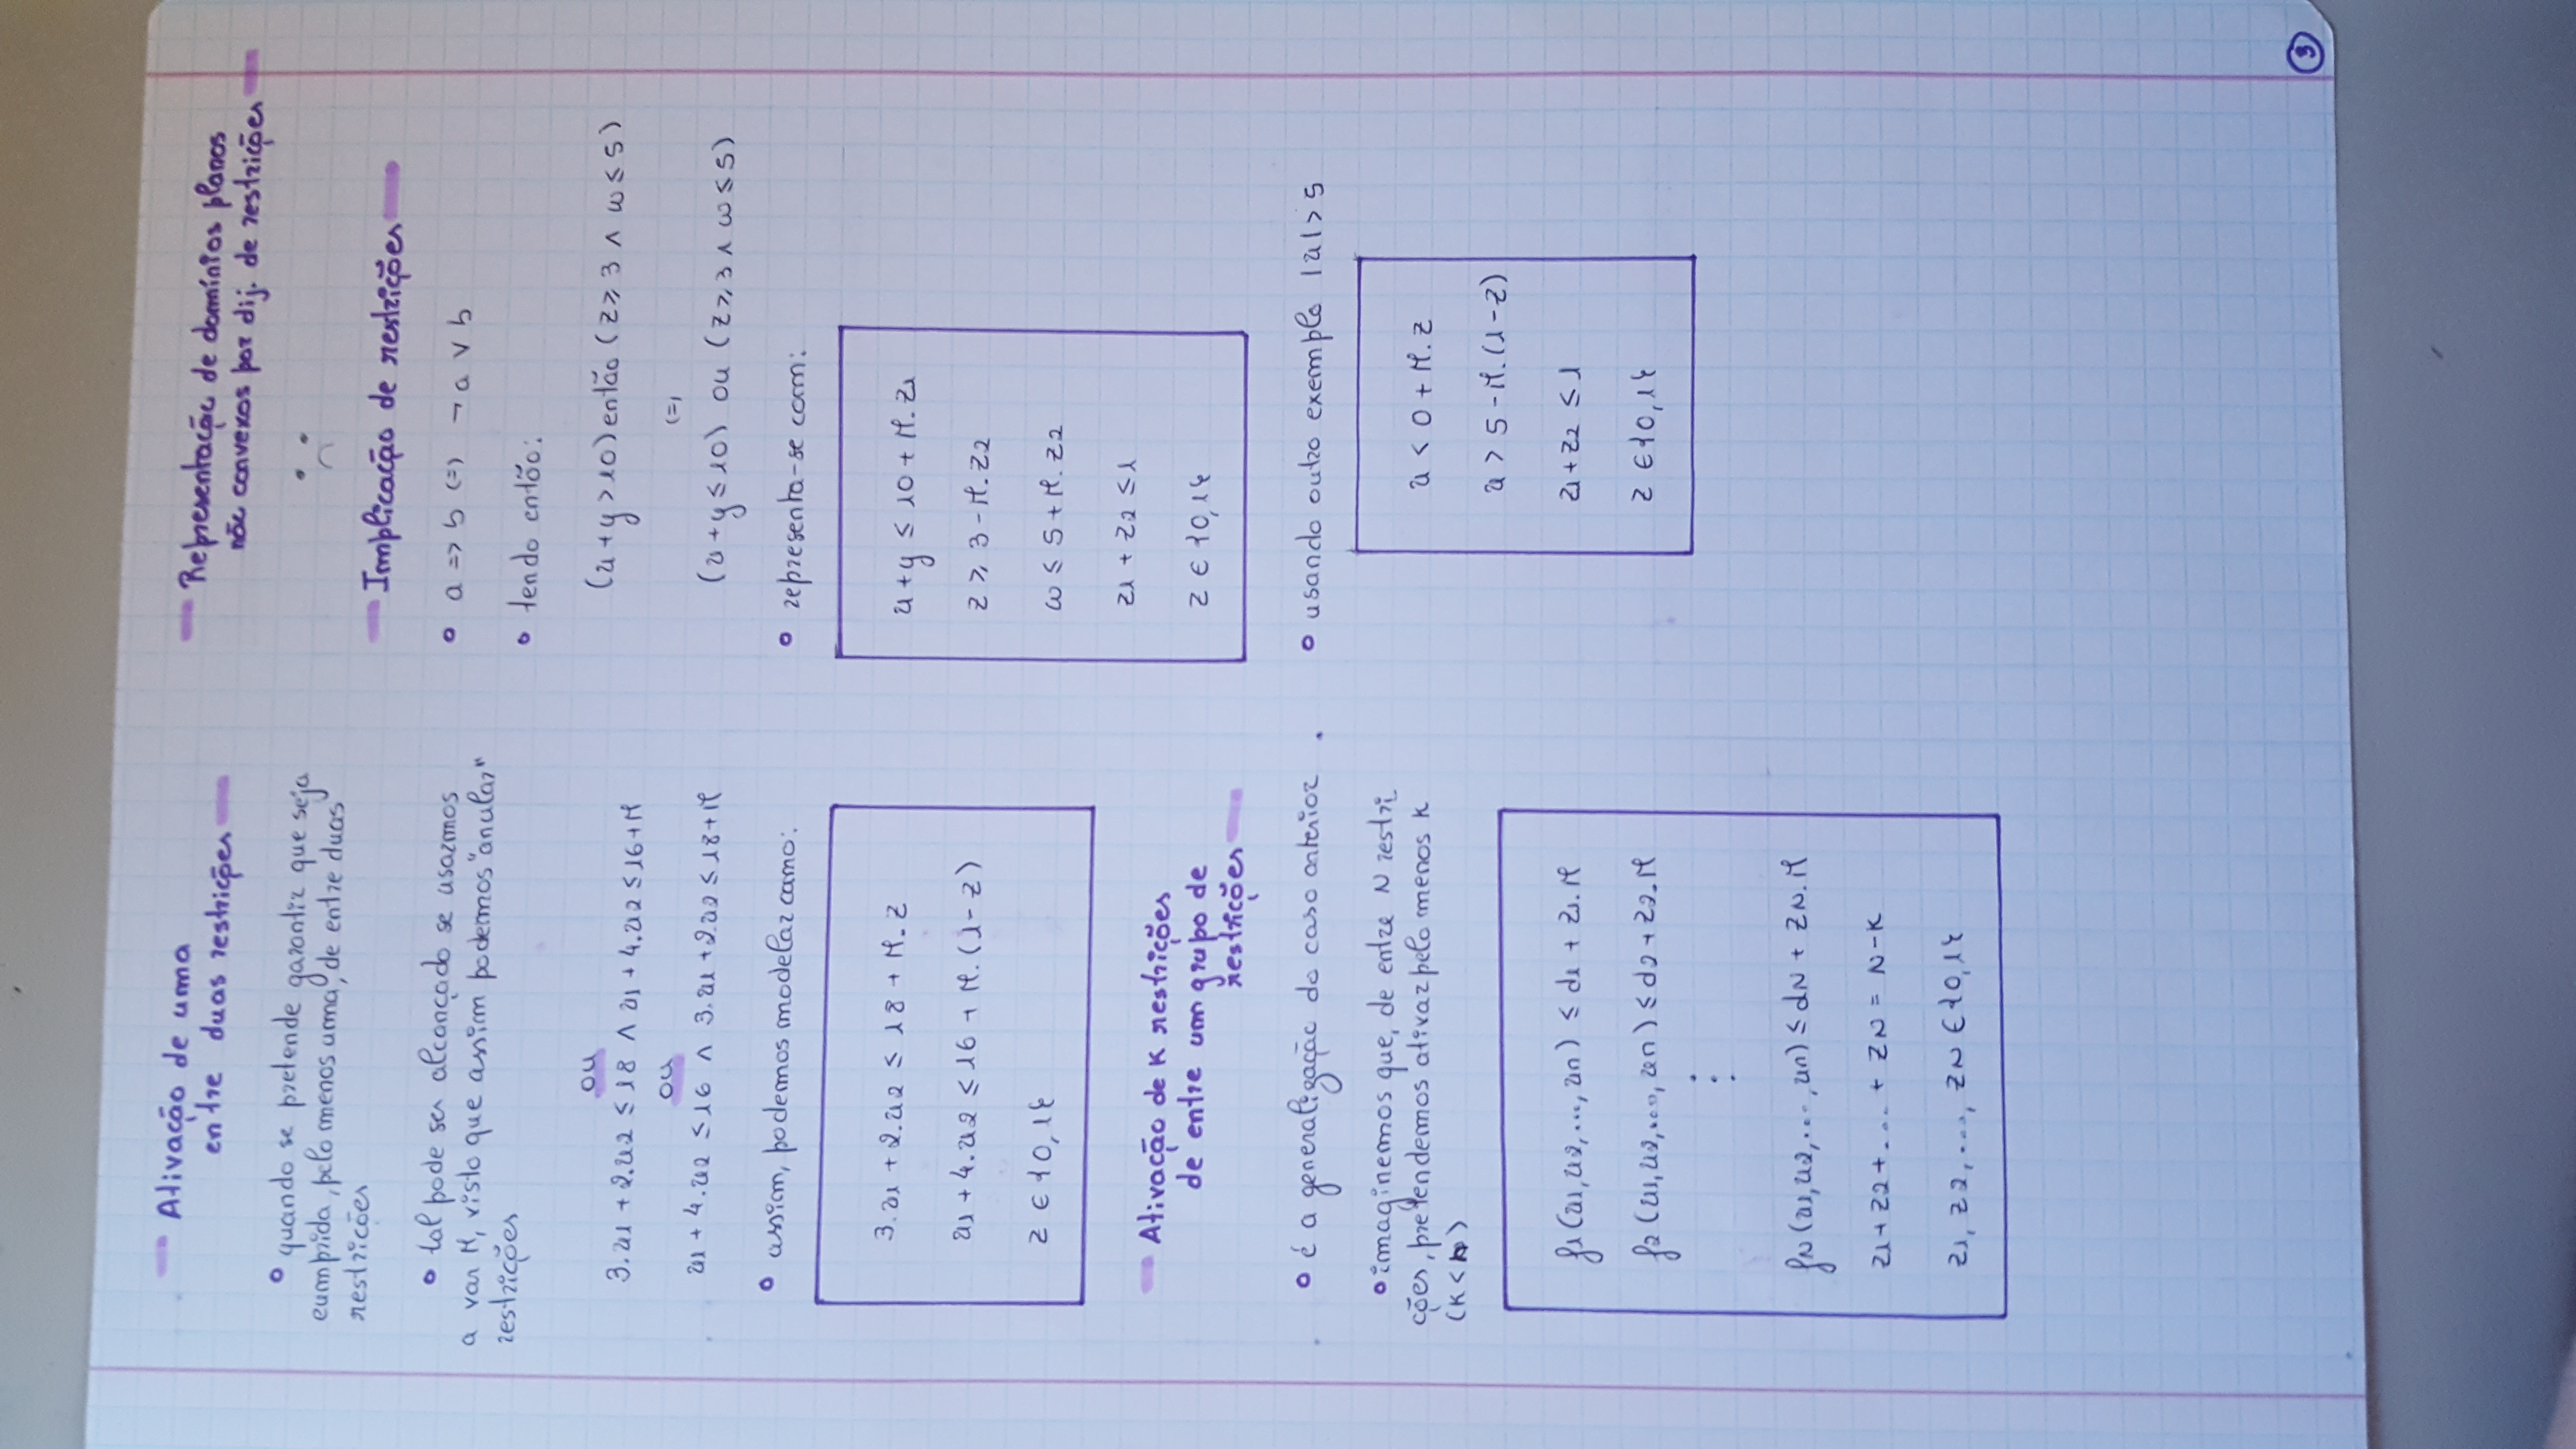 Ativação de uma
entre duas restrições
• quando se pretende garantir que seja
cumprida, pelo menos uma, de entre duas
restrições
• tal pode ser alcançado se usarmos
a var M, visto que assim podemos "anular"
restrições
ou
3.x1 + 2.x2 ≤ 18 ∧ x1 + 4.x2 ≤ 16+M
ou
x1 + 4.x2 ≤ 16 ∧ 3.x1 + 2.x2 ≤ 18+M
• assim, podemos modelar como:
3.x1 + 2.x2 ≤ 18 + M.z
x1 + 4.x2 ≤ 16 + M.(1-z)
z ∈ {0,1}
Ativação de K restrições
de entre um grupo de
restrições
• é a generalização do caso anterior
• imaginemos que, de entre N restri
ções, pretendemos ativar pelo menos K
(K<N)
f1(x1,x2,...,xn) ≤ d1 + z1.M
f2(x1,x2,...,xn) ≤ d2 + z2.M
⋮
fN(x1,x2,...,xn) ≤ dN + zN.M
z1 + z2 + ... + zN = N-K
z1, z2, ..., zN ∈ {0,1}
Representação de domínios planos
não convexos por dij. de restrições
Implicação de restrições
• a => b (=) ¬a ∨ b
• tendo então:
(x+y>10) então (z≥3 ∧ w≤5)
(=)
(x+y≤10) ou (z≥3 ∧ w≤5)
• representa-se com:
x+y ≤ 10 + M.z1
z ≥ 3-M.z2
w ≤ 5+M.z2
z1 + z2 ≤ 1
z ∈ {0,1}
• usando outro exemplo |x|>5
x < 0 + M.z
x > 5 - M.(1-z)
z1+z2 ≤ 1
z ∈ {0,1}
3